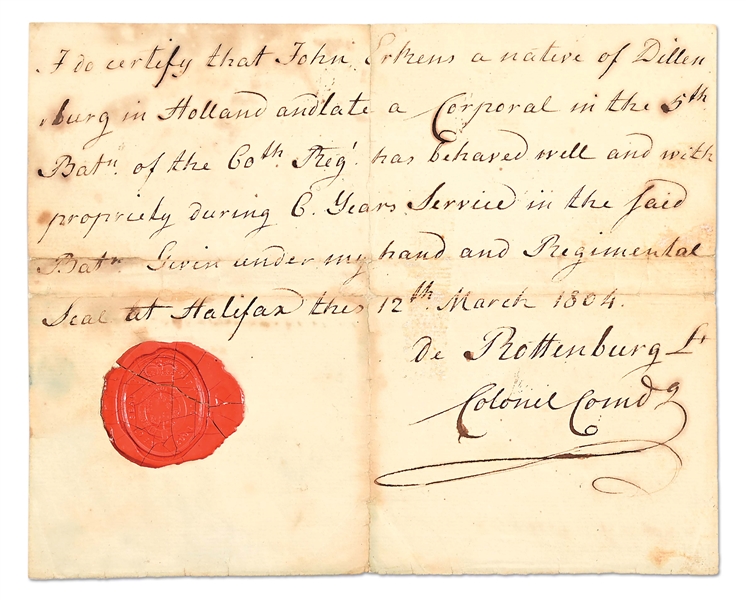 I do certify that John Erkens a native of Dillen
burg in Holland and late a Corporal in the 5th
Batn. of the 60th. Regt. has behaved well and with
propriety during 6. Years Service in the said
Batn. Givin under my hand and Regimental
Seal at Halifax this 12th. March 1804.
de Rottenburg Lt
Colonel Comdg